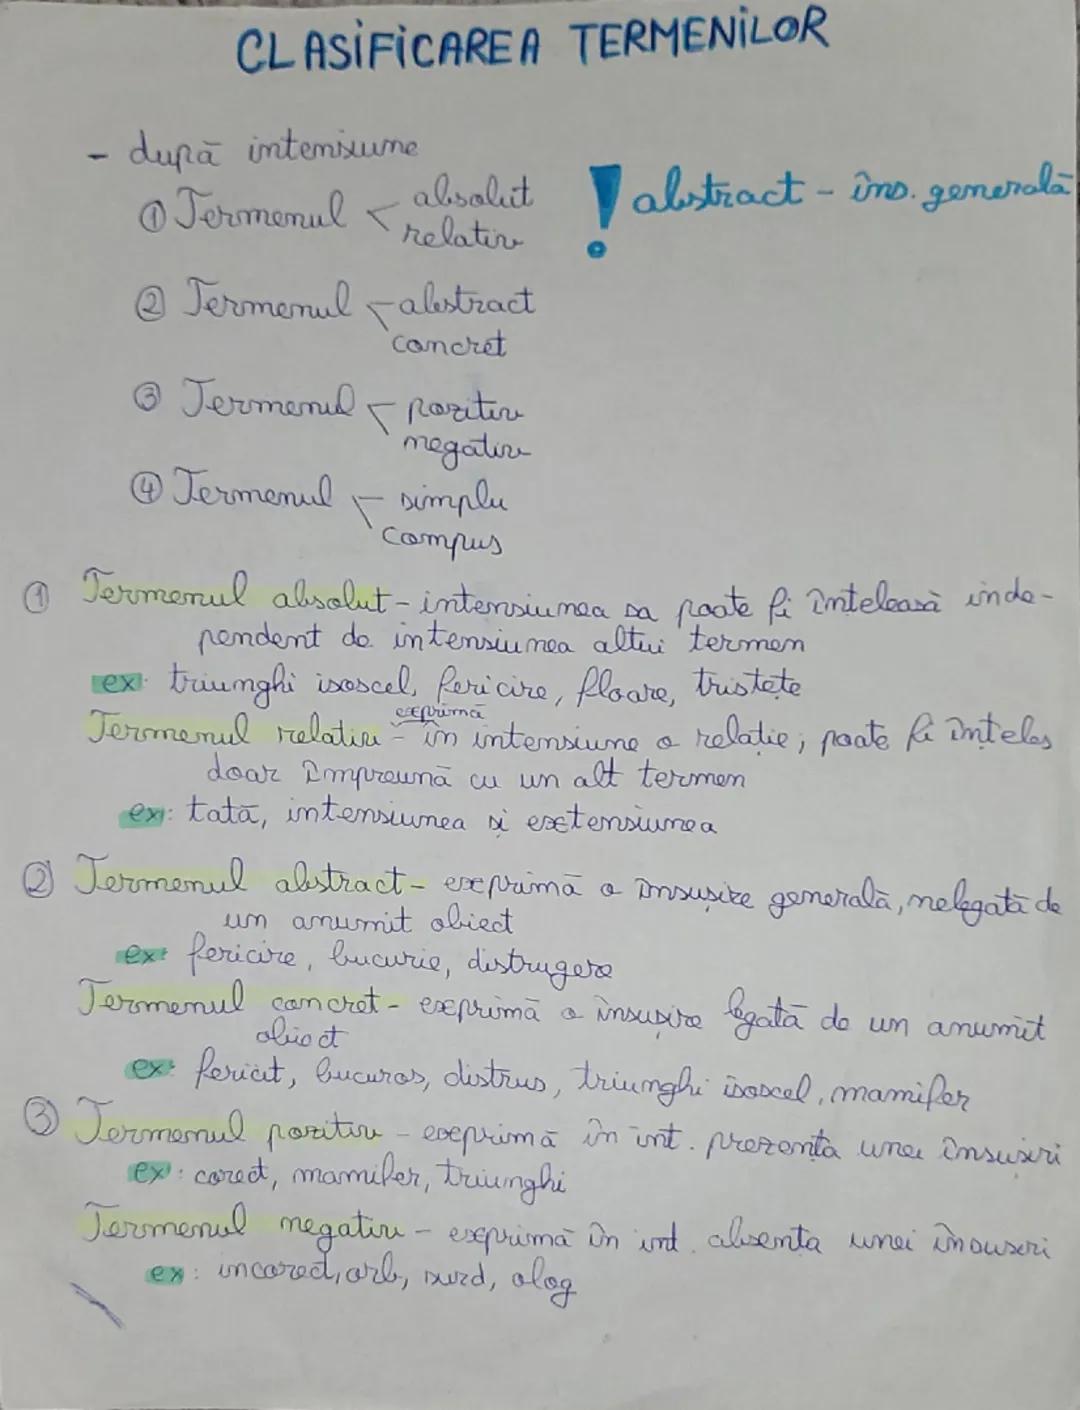 CLASIFICAREA TERMENILOR
- după intensiune
① Termenul < absolut
relativ
! abstract - îns. generală
② Termenul < abstract
concret
③ Termenul < pozitiv
negativ
④ Termenul < simplu
compus
① Termenul absolut - intensiunea sa poate fi înteleasă inde-
pendent de intensiunea altui termen
ex: triunghi isoscel, fericire, floare, tristețe
exprimă
Termenul relativ - în intensiune o relație; poate fi înteles
doar împreună cu un alt termen
ex: tată, intensiunea si extensiunea
② Termenul abstract - exprimă o însusire generală, nelegată de
un anumit obiect
ex: fericire, bucurie, distrugere
Termenul concret - exprimă o însusire legată de un anumit
obiect
ex: fericit, bucuros, distrus, triunghi isoscel, mamifer
③ Termenul pozitiv - exprimă în int. prezența unei însusiri
ex: corect, mamifer, triunghi
Termenul negativ - exprimă în int. absența unei însusiri
ex: incorect, orb, surd, olog